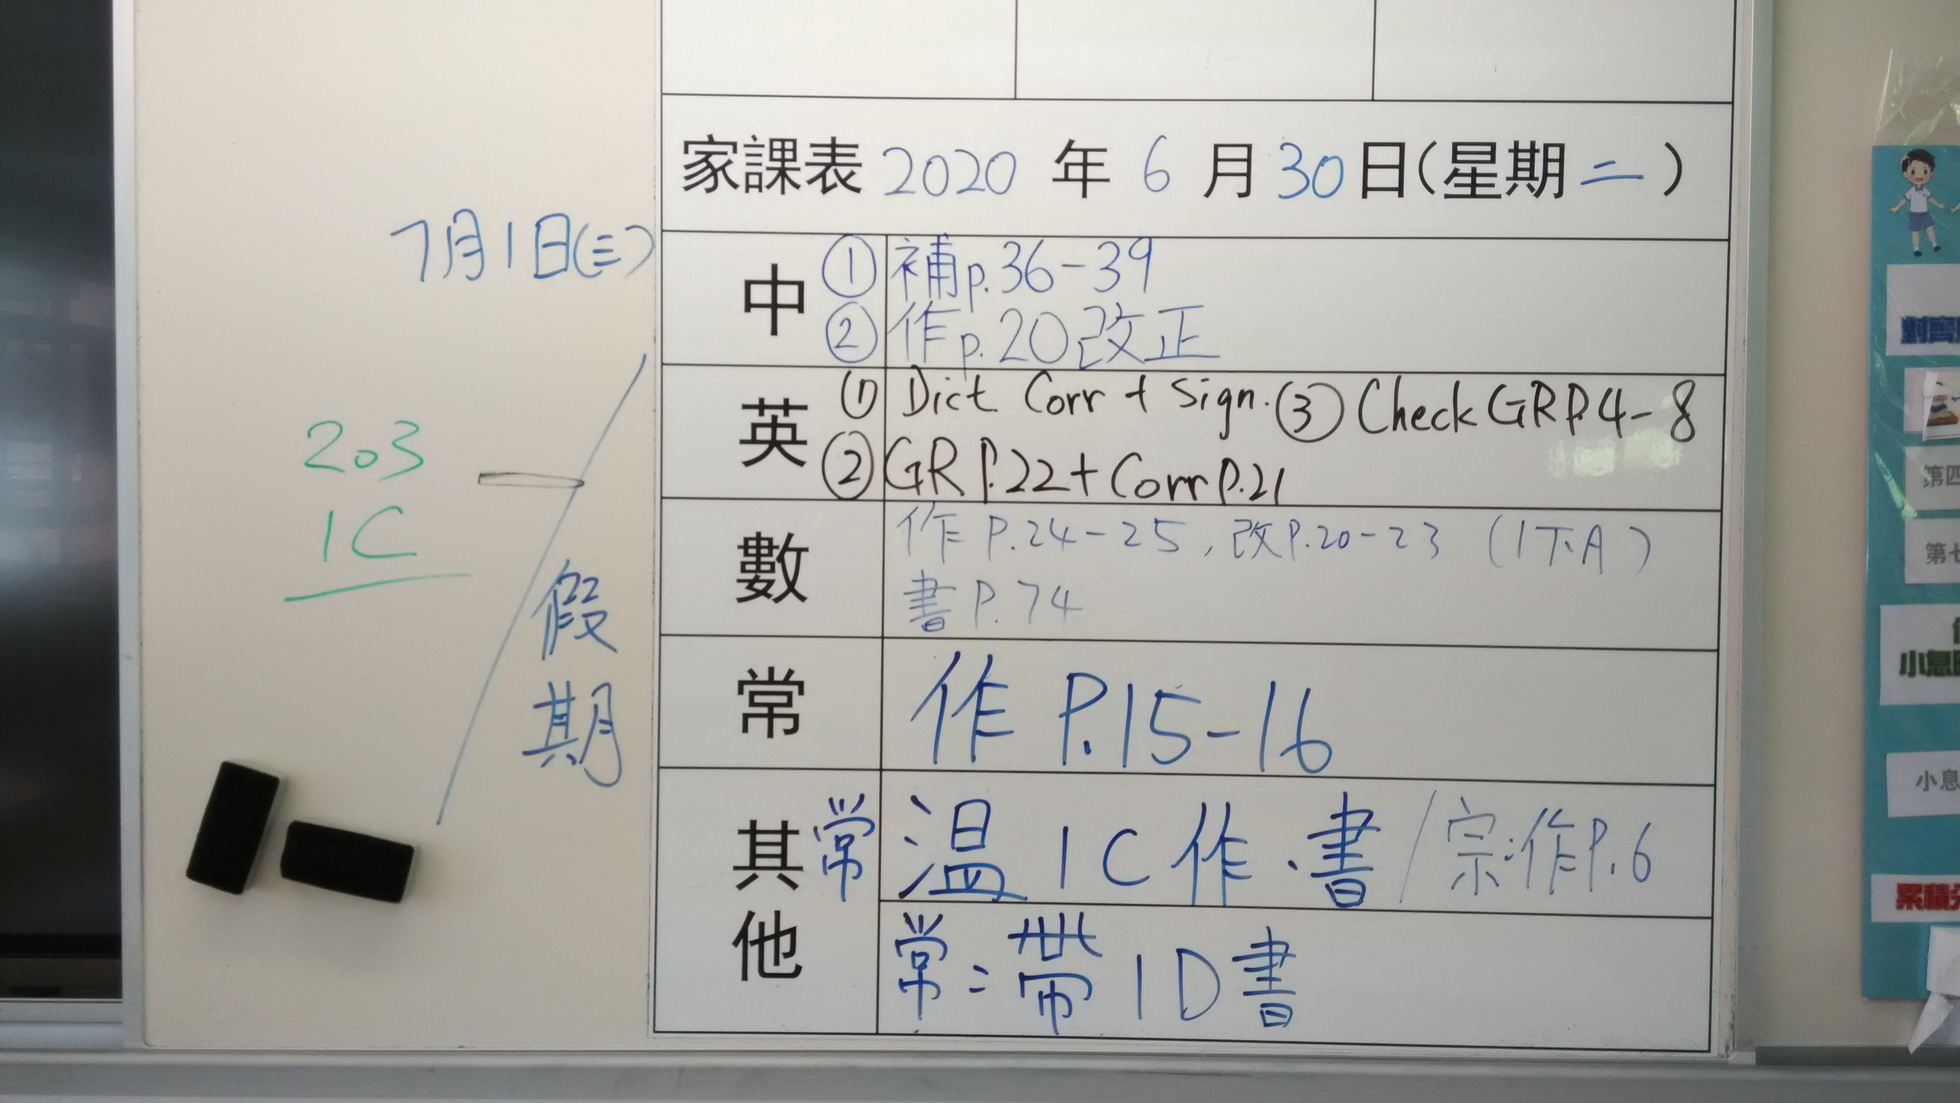 家課表 2020 年 6 月 30 日(星期二)
7月1日(三)
假期
203
1C
中 ① 補p.36-39
② 作p.20改正
英 ① Dict Corr + Sign. ③ Check GR P.4-8
② GR P.22 + Corr P.21
數 作 P.24-25, 改P.20-23 (1下A)
書 P.74
常 作 P.15-16
其他 常 溫 1C 作、書 / 宗:作P.6
常:帶 1D 書
對齊
第四
第七
小息
小息
累積分